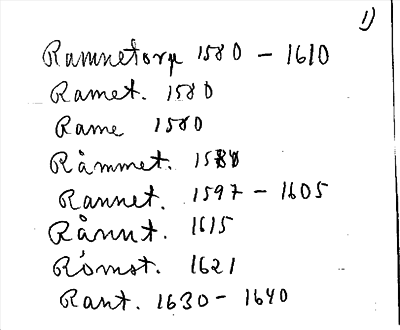 1)
Ramnetorp 1580 - 1610
Ramet. 1580
Rame 1580
Råmmet.
Rannet. 1597 - 1605
Rånnt. 1615
Rómst. 1621
Rant. 1630 - 1640